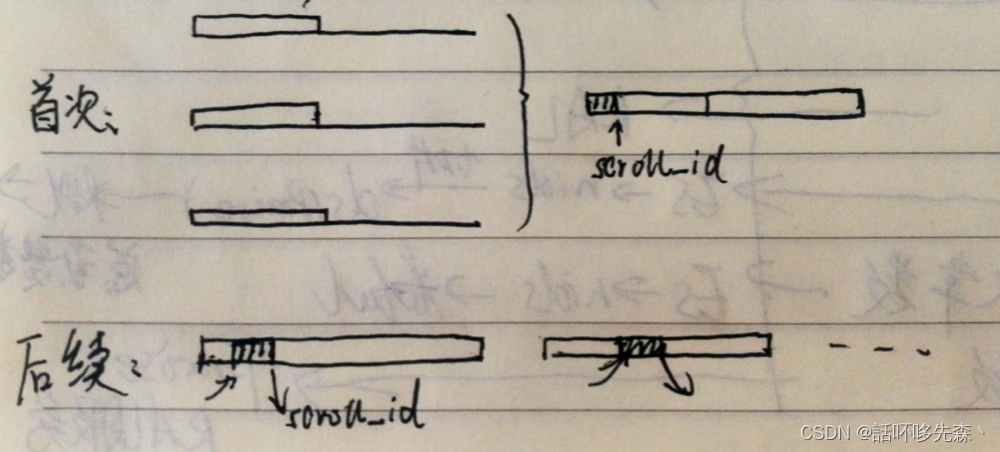 首次:
scroll_id
后续:
scroll_id
CSDN @話吥哆先森丶